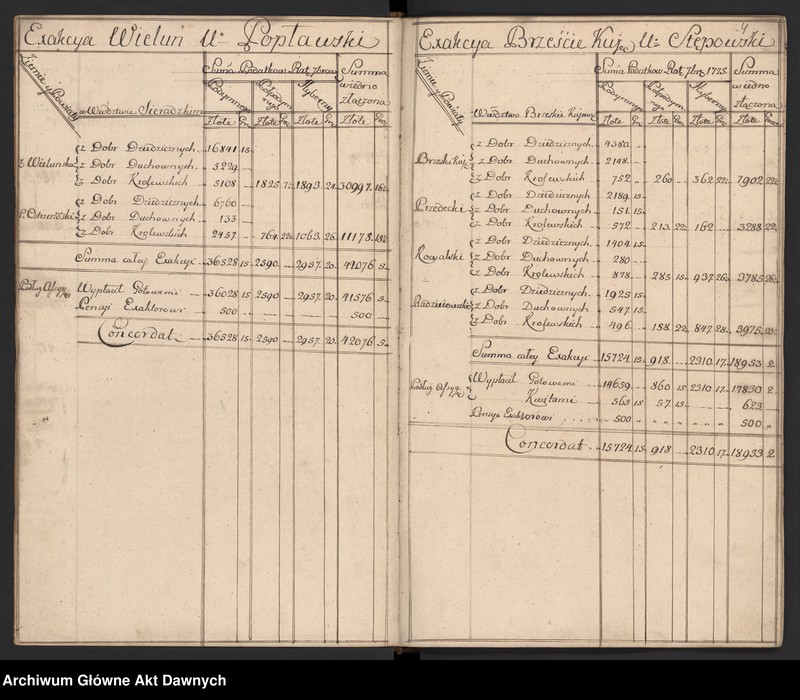 Exakcya Wieluń Ur Popławski
Ziemie y Powiaty
w Wdztwie Sieradzkim
Suma Podatkow Rat 7brow
Podymne
Podpodym nego
Hyberny
Summa w iedno złączona
Złote Gr Złote Gr Złote Gr Złote Gr
z Dobr Dziedzicznych 16841 15
Z Wieluńska z Dobr Duchownych 5229
z Dobr Krolewskich 5108 1825 7 1893 24 30997 16
z Dobr Dziedzicznych 6760
z Dobr Duchownych 133
z Dobr Krolewskich 2457 764 22 1063 26 11178 18
Summa całey Exakcyi 36528 15 2590 2957 20 42076 5
Wypłacił Gotowemi 36028 15 2590 2957 20 41576 5
Pensyi Exaktorowi 500 500
Concordat 36528 15 2590 2957 20 42076 5
4
Exakcya Brzeście Kuj Ur Stępowski
Ziemie y Powiaty
Wdztwo Brzeskie Kujaw
Suma Podatkow Rat 7br 1775
Podymne
Podpodym nego
Hyberny
Summa w iedno złączona
Złote Gr Złote Gr Złote Gr Złote Gr
z Dobr Dziedzicznych 4380
Brzeski Kuj z Dobr Duchownych 2148
z Dobr Krolewskich 752 260 362 22 7902 22
z Dobr Dziedzicznych 2189 15
Przedecki z Dobr Duchownych 151 15
z Dobr Krolewskich 572 213 22 162 3288 22
z Dobr Dziedzicznych 1404 15
Kowalski z Dobr Duchownych 280
z Dobr Krolewskich 878 285 15 937 26 3785 26
z Dobr Dziedzicznych 1925 15
Radziejowski z Dobr Duchownych 547 15
z Dobr Krolewskich 496 158 22 847 28 3975 20
Summa całey Exakcyi 15724 15 918 2310 17 18953 2
Wypłacił Gotowemi 14659 860 15 2310 17 17830 2
Kwitami 565 15 57 15 623
Pensya Exaktorowi 500 500
Concordat 15724 15 918 2310 17 18953 2
Archiwum Główne Akt Dawnych